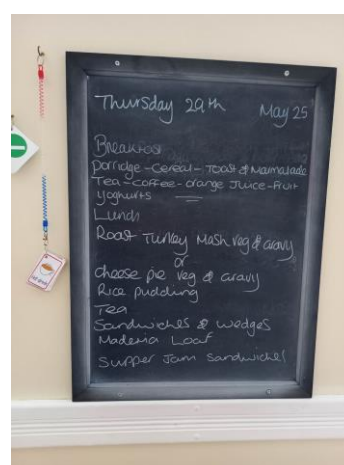 Thursday 29th May 25
Breakfast
Porridge - Cereal - Toast & Marmalade
Tea - Coffee - Orange Juice - Fruit
Yoghurts
Lunch
Roast Turkey Mash veg & gravy
or
cheese pie veg & gravy
Rice pudding
Tea
Sandwiches & wedges
Madeira Loaf
Supper Jam Sandwiches